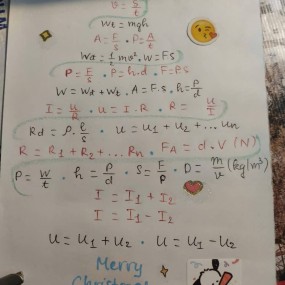 v = S/t
Wt = mgh
A = F/s · P = A/t
Wк = 1/2 mv² · W = Fs
P = F/s · P = h·d · F = Ps
W = Wк + Wt · A = F·s · h = P/d
I = U/R · U = I·R · R = U/I
Rd = ρ · l/s · U = U1 + U2 + ... Un
R = R1 + R2 + ... Rn · FA = d·V (N)
P = W/t · h = P/d · S = F/P · D = m/V (kg/m³)
I = I1 + I2
I = I1 - I2
U = U1 + U2 · U = U1 - U2
Merry
Christmas